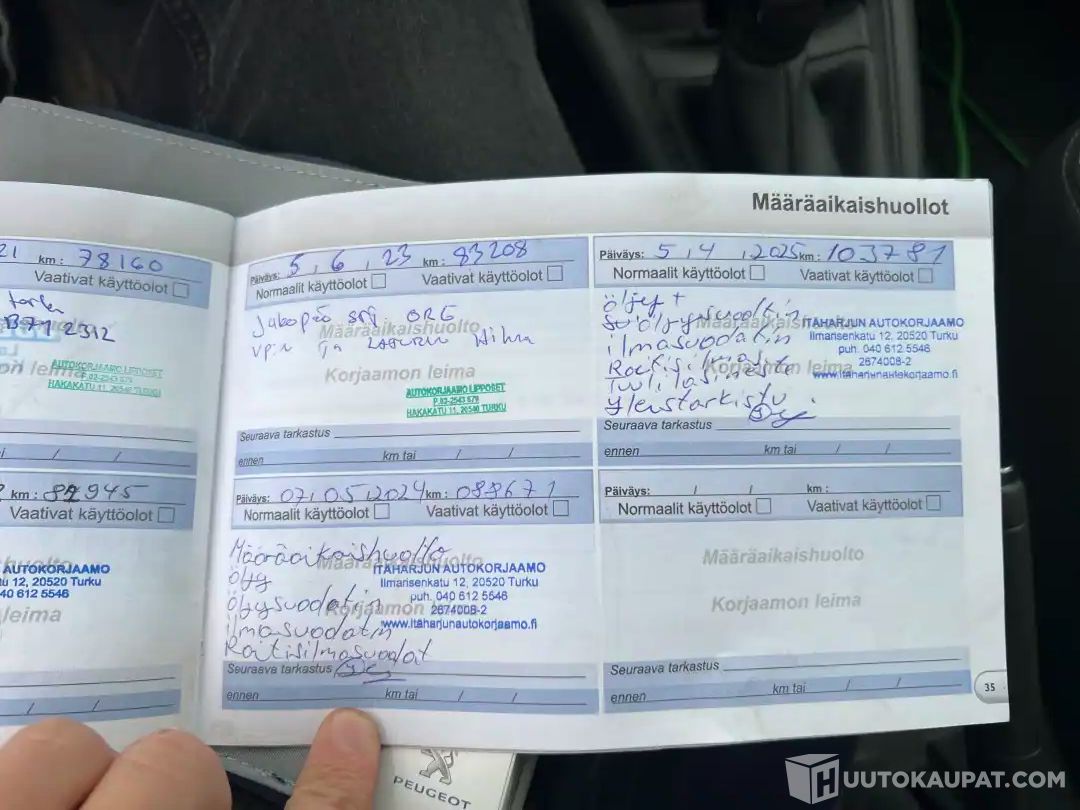 Määräaikaishuollot
21 km : 78160
Vaativat käyttöolot
B71 2312
AUTOKORJAAMO LIPPOSET
P.02-2543 679
HAKAKATU 11, 20540 TURKU
km : 82945
Vaativat käyttöolot
AUTOKORJAAMO
12, 20520 Turku
40 612 5546
leima
Päiväys: 5 , 6 , 23 km : 83208
Normaalit käyttöolot Vaativat käyttöolot
Jakopää srj. ORG
Määräaikaishuolto
VP:n ja LATURIN Hihna
Korjaamon leima
AUTOKORJAAMO LIPPOSET
P.02-2543 679
HAKAKATU 11, 20540 TURKU
Seuraava tarkastus
ennen km tai / /
Päiväys: 07.05.2024 km : 088671
Normaalit käyttöolot Vaativat käyttöolot
Määräaikaishuolto
Määräaikaishuolto
ITÄHARJUN AUTOKORJAAMO
Öljy
Ilmarisenkatu 12, 20520 Turku
Öljysuodatin
puh. 040 612 5546
Korjaamon leima
2674008-2
ilmasuodatin
www.itaharjunautokorjaamo.fi
Raitisilmasuodat
Seuraava tarkastus
ennen km tai / /
Päiväys: 5 , 4 , 2025 km : 103781
Normaalit käyttöolot Vaativat käyttöolot
öljyt +
öljysuodatin
Määräaikaishuolto
ITÄHARJUN AUTOKORJAAMO
ilmasuodatin
Ilmarisenkatu 12, 20520 Turku
puh. 040 612 5546
Raitisilmasuod
Korjaamon leima
2674008-2
Tuulilasineste
www.itaharjunautokorjaamo.fi
Yleistarkistu
Seuraava tarkastus
ennen km tai / /
Päiväys: / / km :
Normaalit käyttöolot Vaativat käyttöolot
Määräaikaishuolto
Korjaamon leima
Seuraava tarkastus
ennen km tai / /
35
PEUGEOT
HUUTOKAUPAT.COM